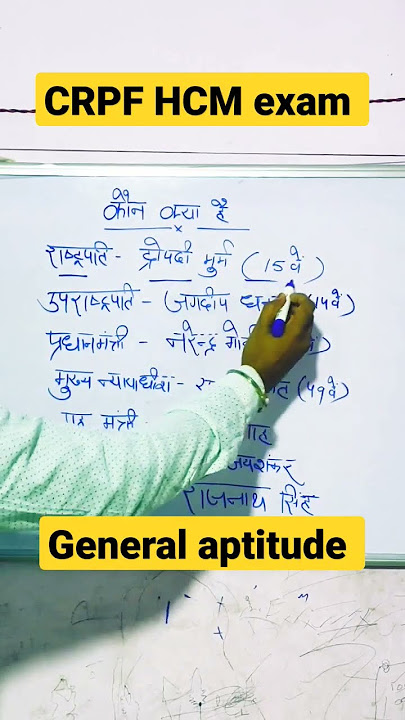 CRPF HCM exam
कौन क्या है
राष्ट्रपति - द्रोपदी मुर्मू (15वें)
उपराष्ट्रपति - जगदीप (14वें)
प्रधानमंत्री - नरेन्द्र
मुख्य न्यायाधीश - (49वें)
मंत्री -
शाह
जयशंकर
राजनाथ सिंह
General aptitude